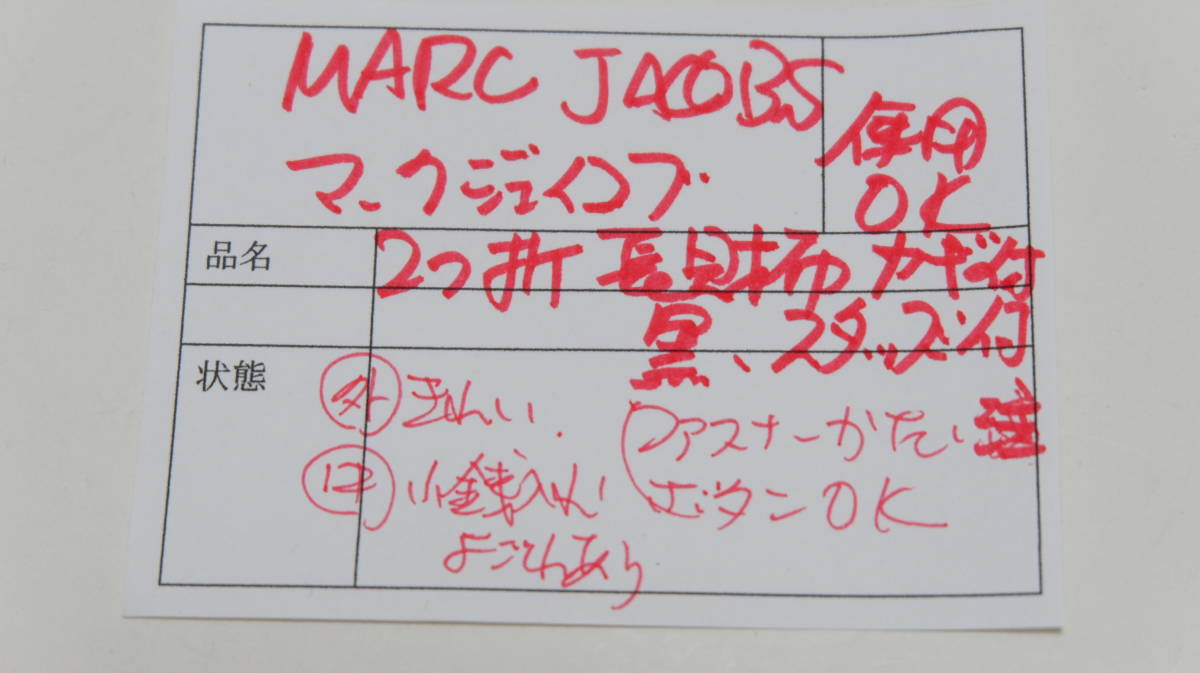 MARC JACOBS
マークジェイコブ
使用
OK
品名
2つ折 長財布 カギ付
黒、スタッズ付
状態
外 きれい.
ファスナーかたい
小銭入れ
ボタンOK
よごれあり